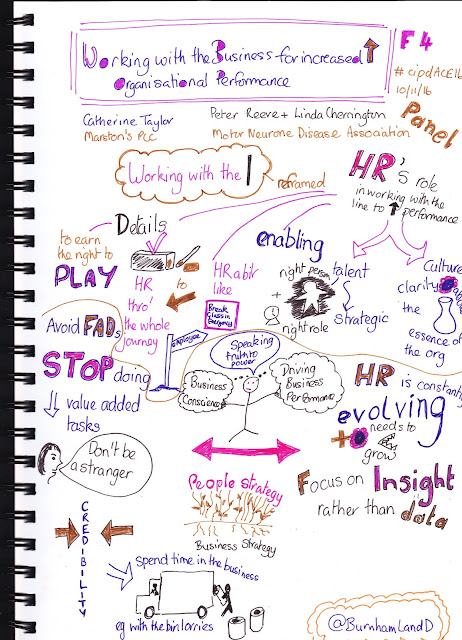 Working with the Business for increased
Organisational Performance
F4
#cipdACE16
10/11/16
Panel
Catherine Taylor
Marston's PLC
Peter Reeve + Linda Cherrington
Motor Neurone Disease Association
Working with the
reframed
HR's role
in working with the
line to performance
Details
to earn
the right to
PLAY
HR
thro'
the whole
journey
to
HR a bit
like
Break
glass in
Emergency
enabling
right person
+
right role
talent
Strategic
Culture
clarity
the
essence of
the org
Avoid FADs
STOP doing
value added
tasks
Employee
Speaking
truth to
power
Business
Conscience
Driving
Business
Performance
HR is constantly
evolving
needs to
grow
Don't be
a stranger
People Strategy
Business Strategy
Focus on Insight
rather than data
CREDIBILITY
Spend time in the business
eg with the bin lorries
@BurnhamLandD